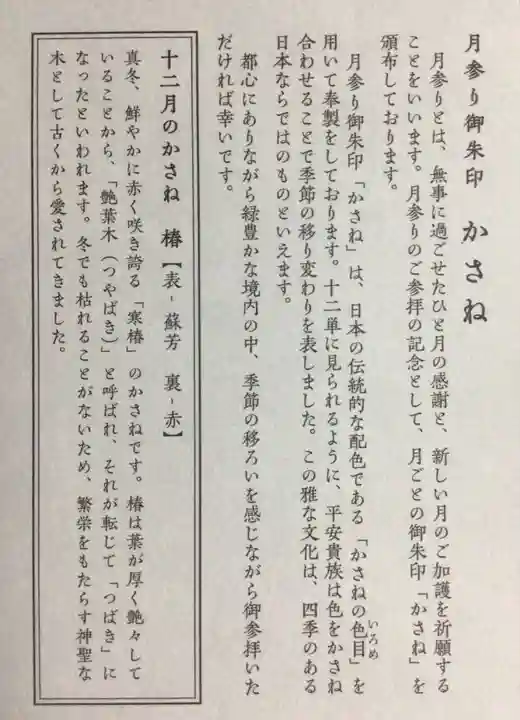 月参り御朱印　かさね
月参りとは、無事に過ごせたひと月の感謝と、新しい月のご加護を祈願する
ことをいいます。月参りのご参拝の記念として、月ごとの御朱印「かさね」を
頒布しております。
月参り御朱印「かさね」は、日本の伝統的な配色である「かさねの色目」を
いろめ
用いて奉製をしております。十二単に見られるように、平安貴族は色をかさね
合わせることで季節の移り変わりを表しました。この雅な文化は、四季のある
日本ならではのものといえます。
都心にありながら緑豊かな境内の中、季節の移ろいを感じながら御参拝いた
だければ幸いです。
十二月のかさね　椿【表-蘇芳　裏-赤】
真冬、鮮やかに赤く咲き誇る「寒椿」のかさねです。椿は葉が厚く艶々して
いることから、「艶葉木（つやばき）」と呼ばれ、それが転じて「つばき」に
なったといわれます。冬でも枯れることがないため、繁栄をもたらす神聖な
木として古くから愛されてきました。